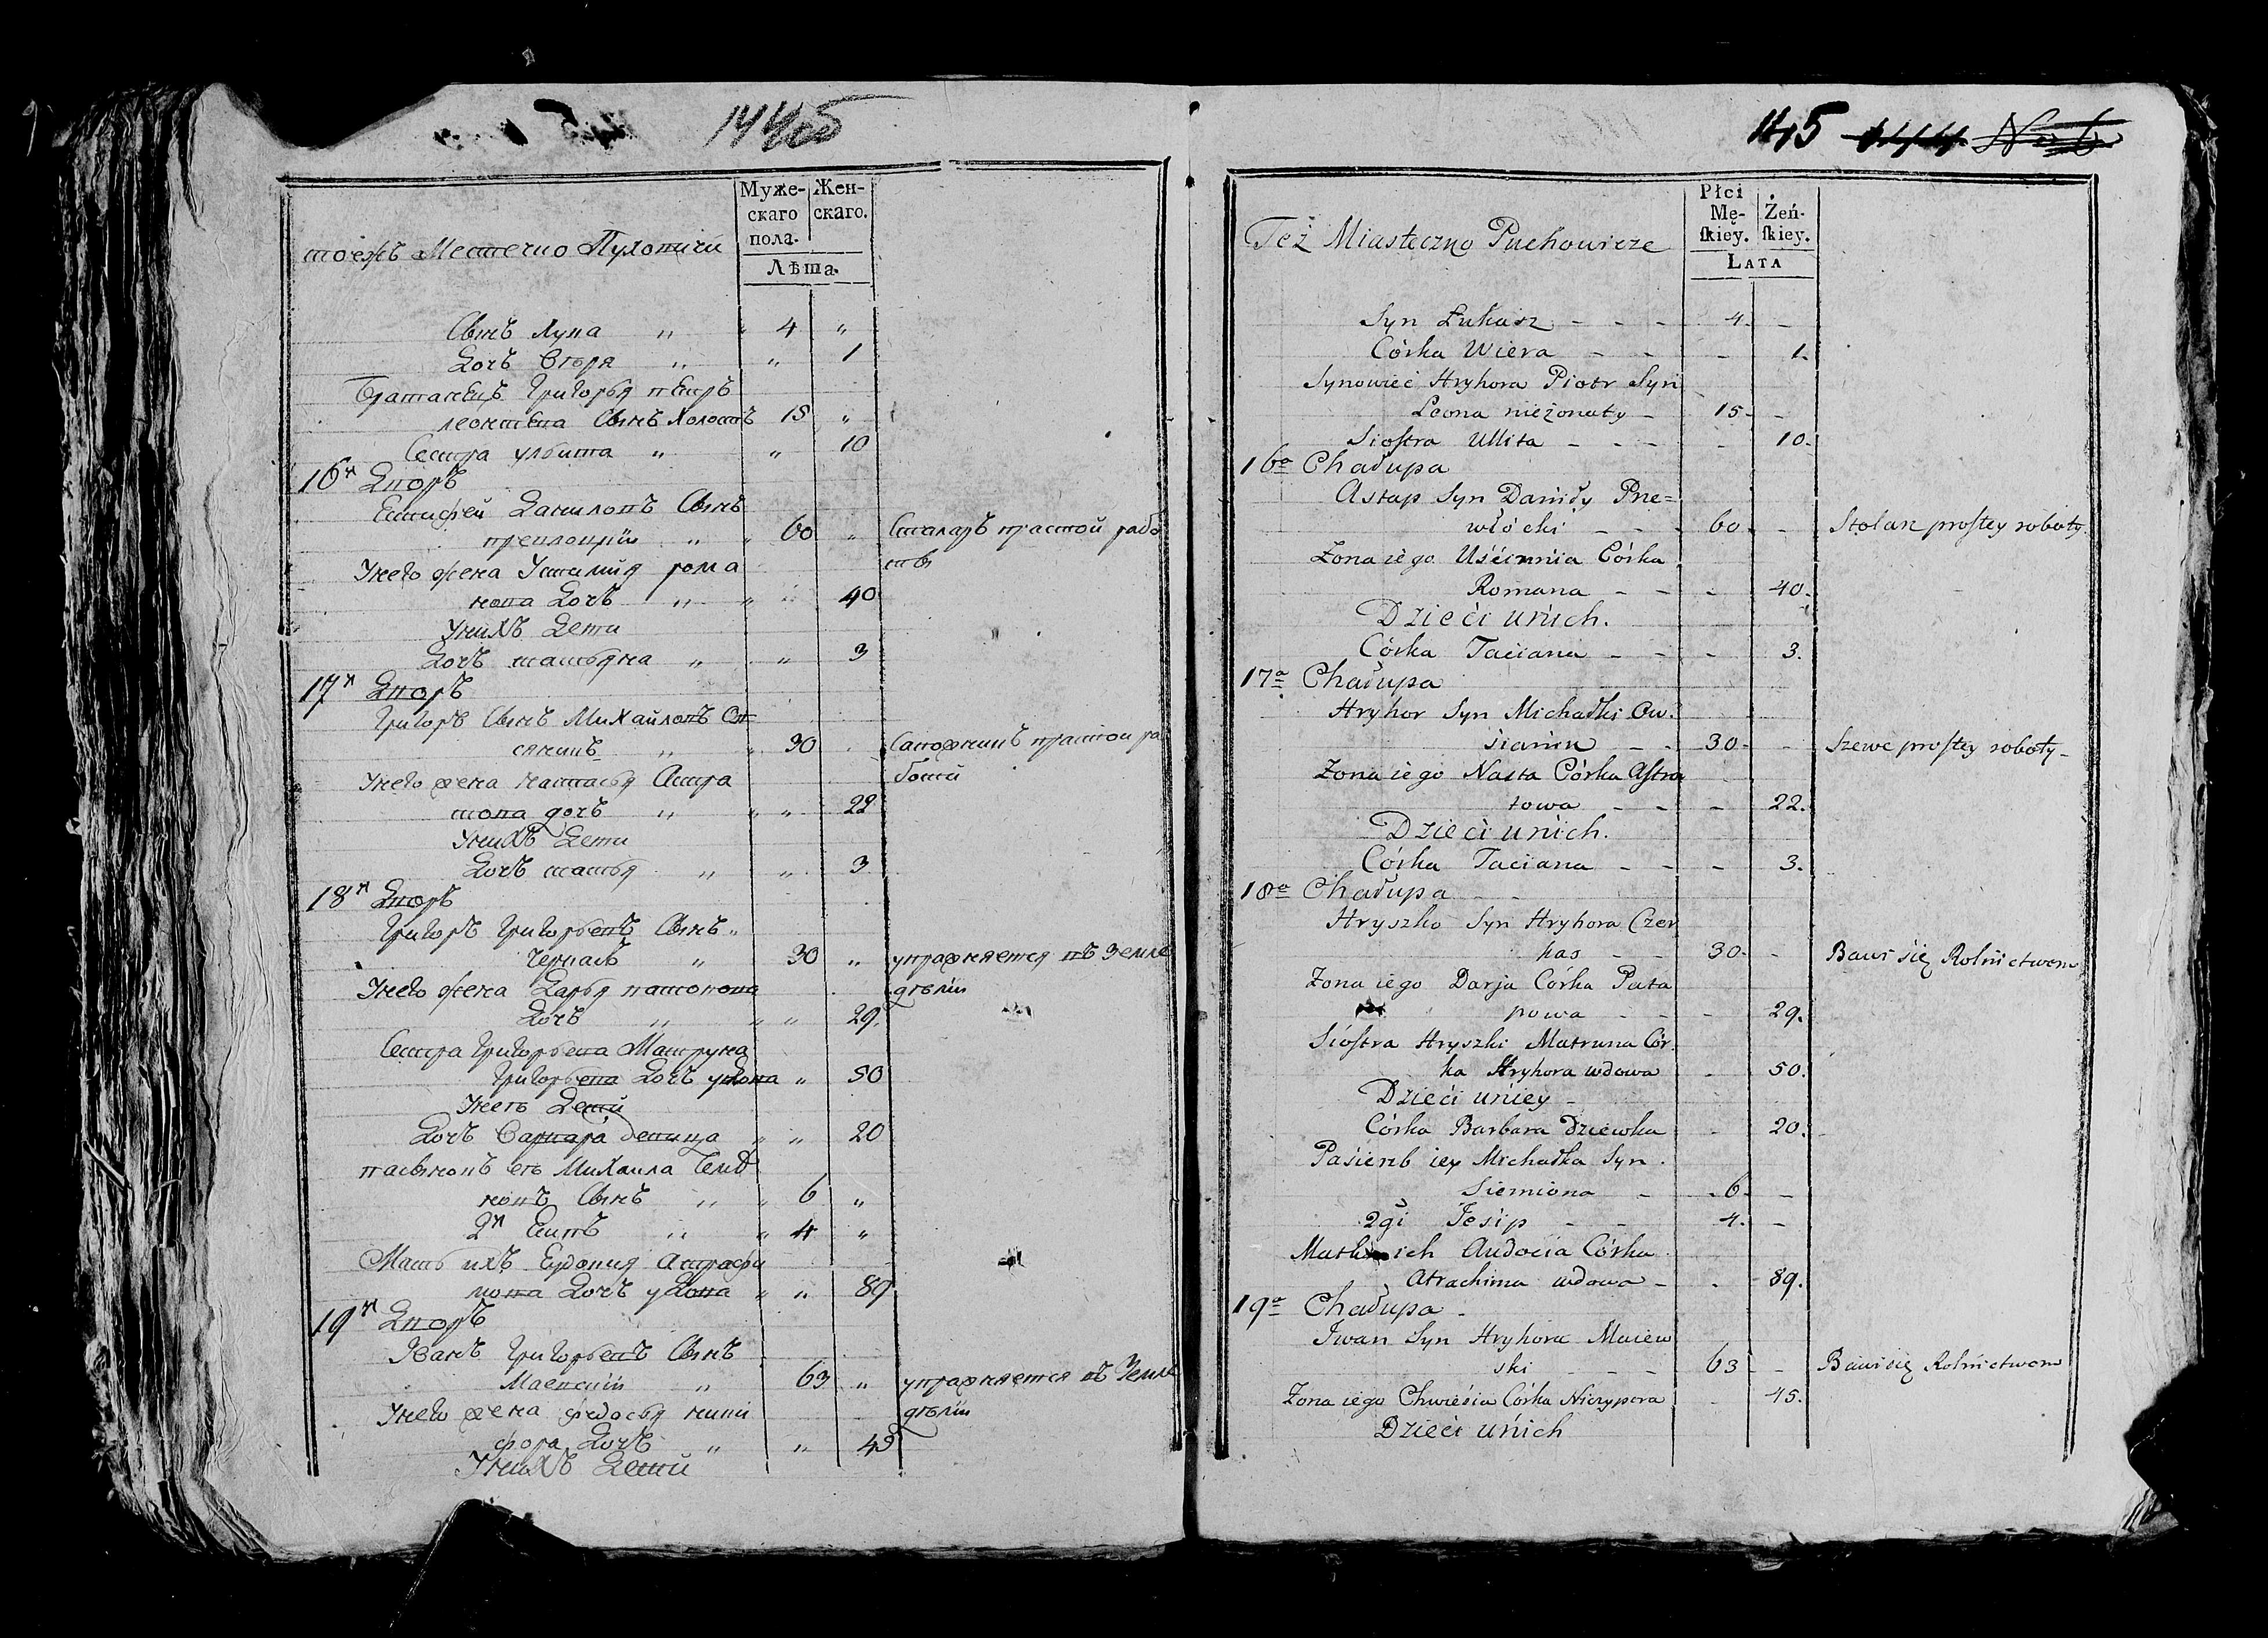 144об
тоежъ Местечко Пуховичи
Муже-
скаго
пола.
Жен-
скаго.
Лѣта.
Сынъ Лука " " 4 "
Дочъ Вера " " 1
Братанецъ Григорья петръ
леонтьева Сынъ Холостъ 15 "
Сестра улвита " " 10
16й Дворъ
Евстифей Даниловъ Сынъ
превлоцкий " " 60 " Сталяръ прастой рабо
ты
Унего жена Устимия рома
нова Дочъ " " " 40
Унихъ Дети
Дочъ татьяна " " 3
17й Дворъ
Григоръ Сынъ Михайловъ Ов
сянинъ " " 30 . Сапожникъ прастои ра
боти
Унего жена настасья Астра
това дочъ " " " 22
Унихъ Дети
Дочъ татья " " 3
18й Дворъ
Григоръ Григорьевъ Сынъ "
Черкасъ " 30 " упражняется въ Земле
делiи
Унего жена Дарья патапова
Дочъ " " " 29.
Сестра Григорьева Матруна
Григорьева Дочъ удова " 50
Унеи Дети
Дочъ Варвара девица " " 20
пасынокъ еи Михаила Семио
новъ Сынъ " " 6 "
2й Есипъ " " 4 "
Мать ихъ Евдокия Астрафи
мова Дочъ удова " " 89
19й Дворъ
Иванъ Григорьевъ Сынъ
Маевский " 63 " упражняется въ Земле
делiи
Унего жена федосья ники
фора Дочъ " " 45
Унихъ Дети
145 144 No 6
Też Miasteczno Puchowicze
Płci
Mę-
ſkiey.
Żeń-
ſkiey.
LATA
Syn Łukasz - - - 4. -
Córka Wiera - - - 1.
Synowiec Hryhora Piotr Syn
Leona nieżonaty - 15. -
Siostra Ullita - - - - 10.
16a Chałupa
Astap Syn Daniły Pre=
włócki - - - 60. - Stolarz prostey roboty
Żona iego Uścinnia Córka
Romana - - - 40.
Dzieci unich.
Córka Taciana - - - 3.
17a Chałupa
Hryhor Syn Michałki Ow.
sianin - - 30. - Szewc prostey roboty -
Żona iego Nasta Córka Astra
towa - - - 22.
Dzieci unich.
Córka Taciana - - - 3.
18a Chałupa - -
Hryszko Syn Hryhora Czer
kas - - 30. - Bawi się Rolnictwem
Żona iego Darja Córka Pata
powa - - - 29.
Siostra Hryszki Matruna Cór.
ka Hryhora wdowa - 50.
Dzieci uniey -
Córka Barbara Dziewka - 20.
Pasierzb iey Michałka Syn.
Siemiona - 6. -
2gi Jesip - - 4. -
Matka ich Audocia Córka
Atrachima wdowa - - 89.
19a Chałupa -
Iwan Syn Hryhora Maiew
ski - - - 63 - Bawi się Rolnictwem
Żona iego Chwiesia Córka Niczypora - 45.
Dzieci unich